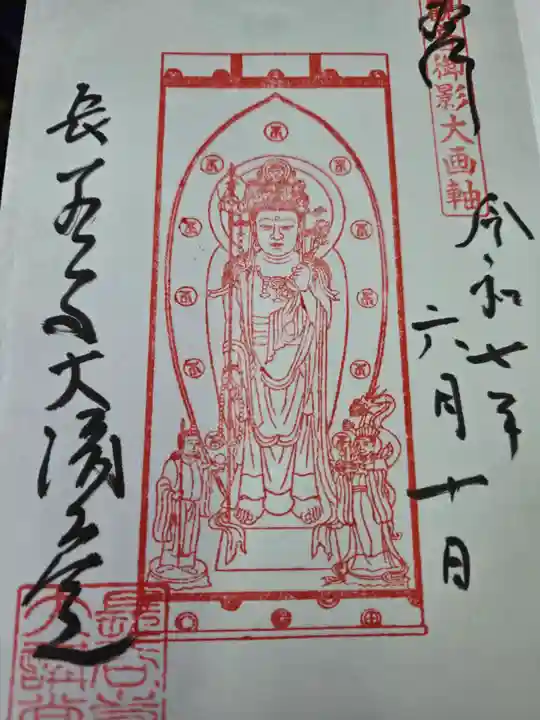 御影大画軸
令和七年
六月十日
長谷寺大講堂
長谷寺
大講堂